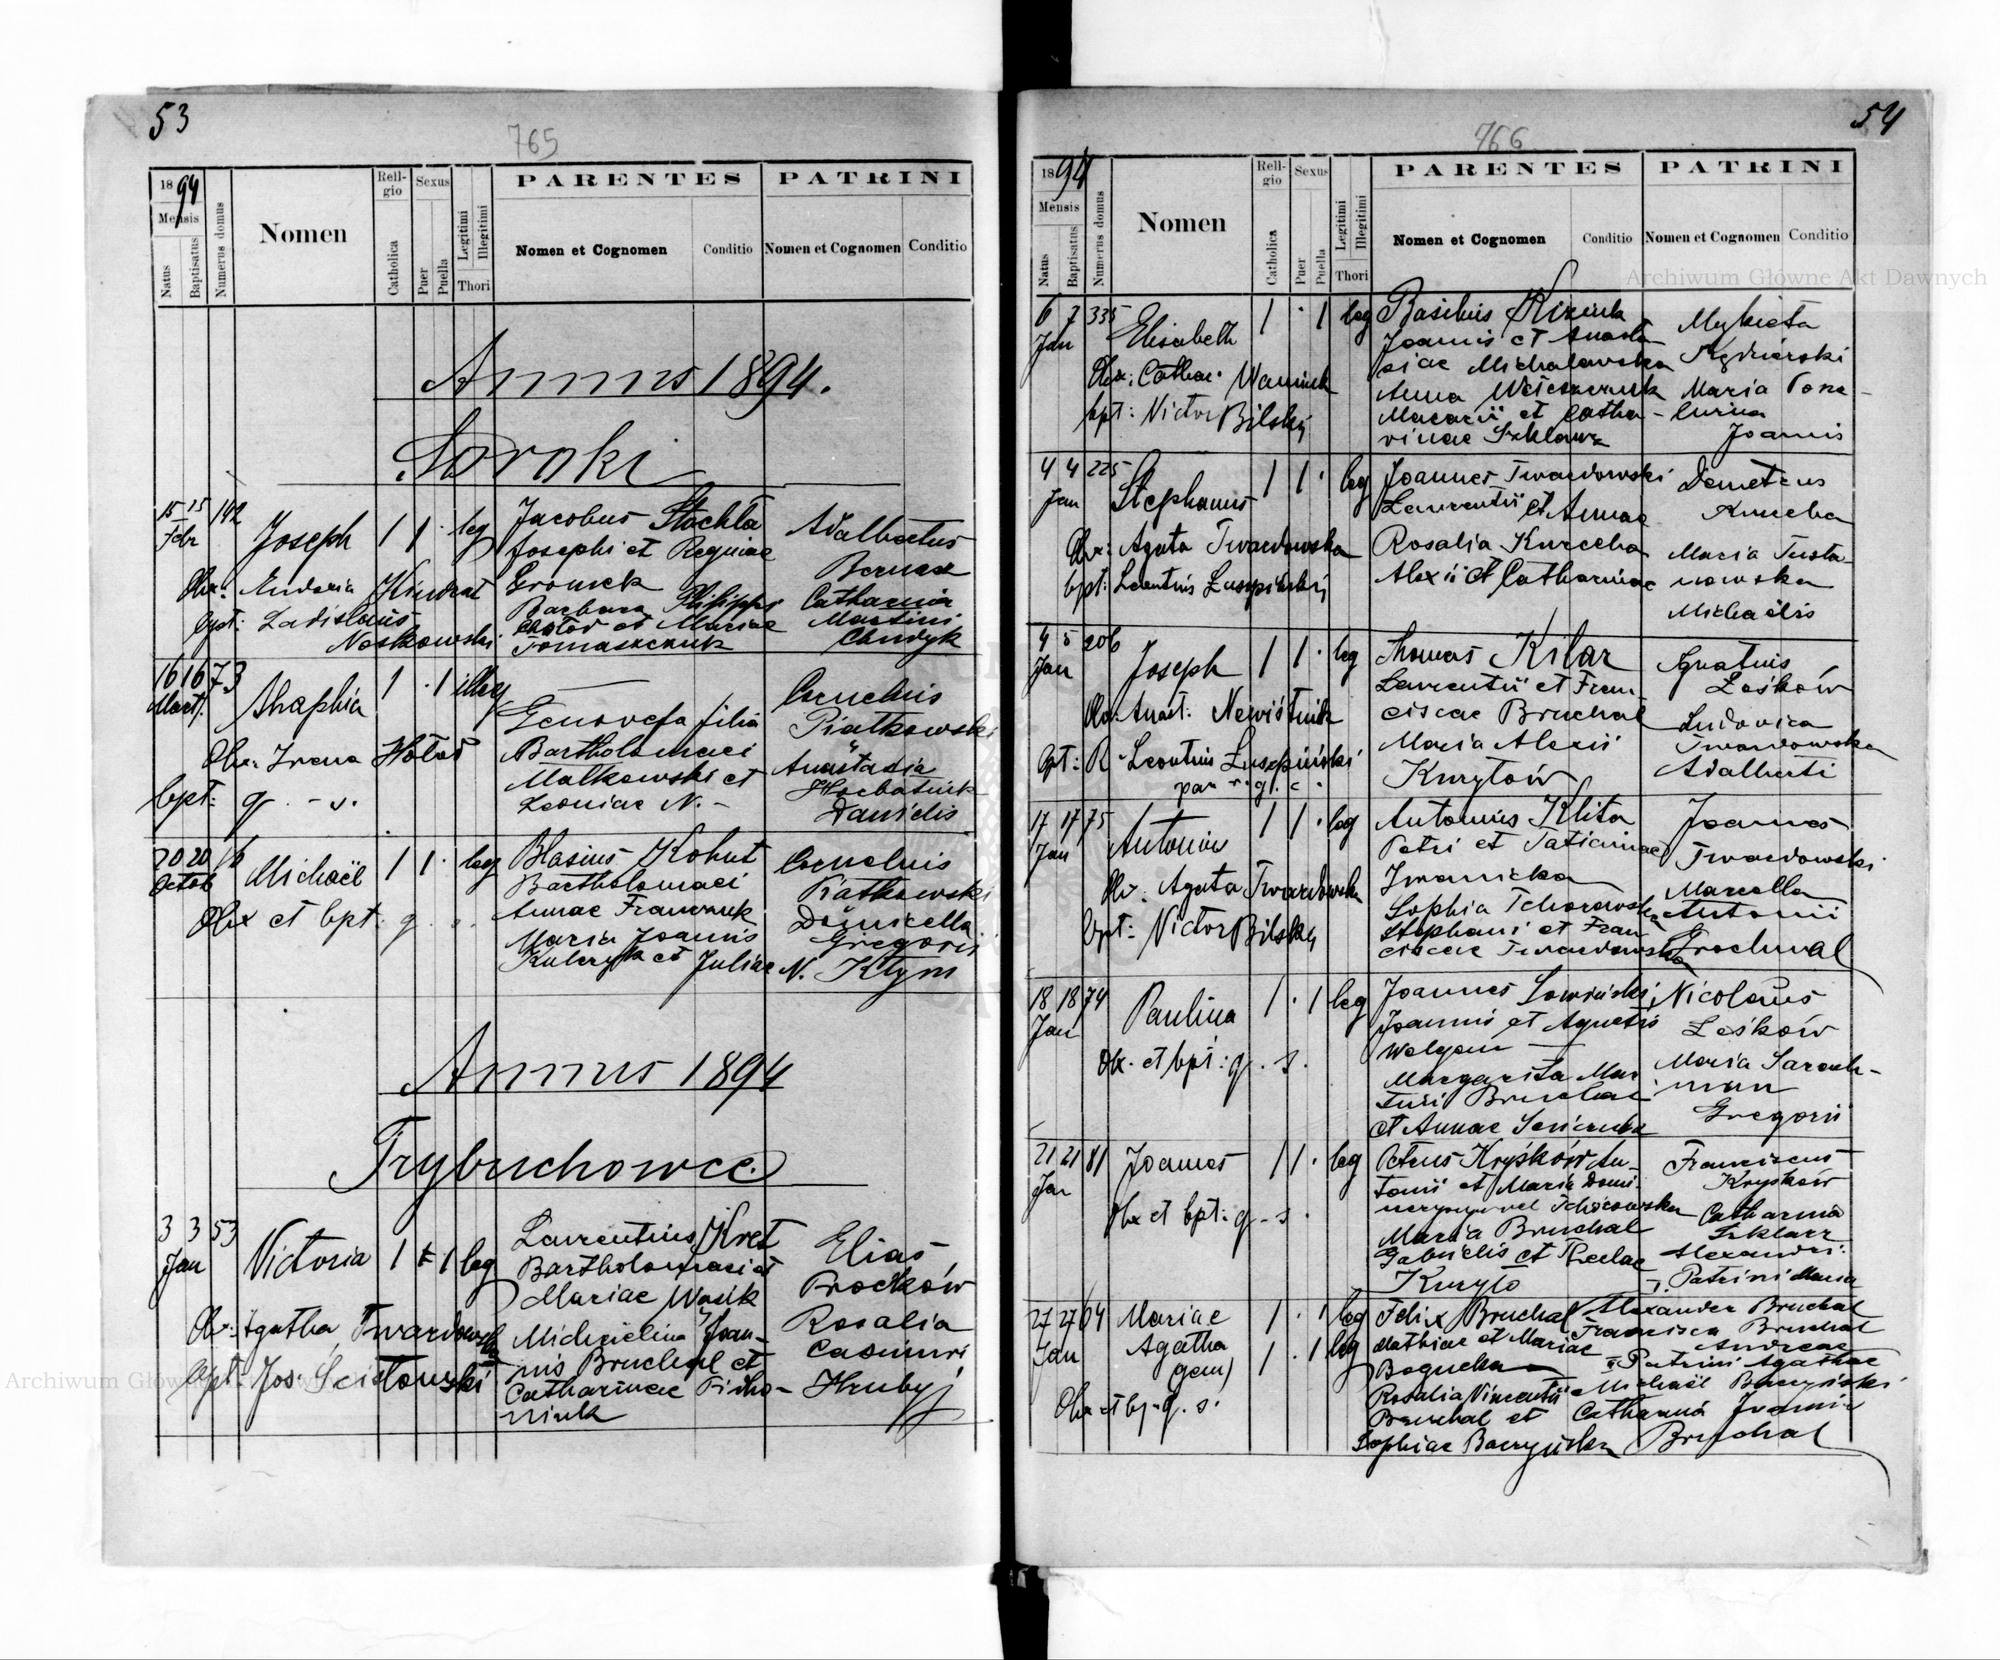 53
765
1894
Mensis
Natus
Baptisatus
Numerus domus
Nomen
Religio
Catholica
Sexus
Puer
Puella
Legitimi
Illegitimi
Thori
PARENTES
Nomen et Cognomen
Conditio
PATRINI
Nomen et Cognomen
Conditio
Annus 1894.
Soroki
15 15 142
Febr
Joseph
1 1 · leg
Obx:
Kindrat
bpt: Ladislaus
Noskowski
Jacobus Stachta
Josephi et Reginae
Gronick
Barbara Philippi
et Mariae
Tomaszczuk
Adalbertus
Bernas
Catharina
Martini
Chudyk
16 16 73
Mart.
1 · 1 illeg
Obx: Irena Hołod
bpt: q. - s.
Genovefa filia
Bartholomaei
Małkowski et
Leoniae N. -
Cornelius
Piatkowski
Anastasia
Horbatiuk
Danielis
20 20 16
Octob
Michaël
1 1 · leg
Obx et bpt: q. s.
Blasius Kohut
Bartholomaei
Annae Franczuk
Maria Joannis
Kulczyk et Juliae N.
Cornelius
Gregorii
Kłym
Annus 1894
Trybuchowce
3 3 53
Jan
Victoria
1 1 leg
Obx: Agatha Twardowska
bpt: Jos: Scisłowski
Laurentius Kret
Bartholomaei et
Mariae Wasik
Michaelina Joan-
nis Bruchal et
Catharinae Ticho-
niuk
Elias
Proćków
Rosalia
Casimiri
Hrubyj
54
766
1894
Mensis
Natus
Baptisatus
Numerus domus
Nomen
Religio
Catholica
Sexus
Puer
Puella
Legitimi
Illegitimi
Thori
PARENTES
Nomen et Cognomen
Conditio
PATRINI
Nomen et Cognomen
Conditio
Archiwum Główne Akt Dawnych
6 7 335
Jan
Elisabeth
1 · 1 leg
Obx: Cathar.
bpt: Victor Bilsky
Basilius
Joannis et Anasta-
siae Michalowska
Anna
Macarii et Catha-
rinae Szklarz
Mykieta
Maria
Joannis
4 4 225
Jan
Stephanus
1 1 · leg
Obx: Agata Twardowska
bpt: Leontius Łusypiński
Joannes Twardowski
Laurentii et Annae
Rosalia Kurceba
Alexii et Catharinae
Demetrius
Maria Tusta-
nowska
Michaëlis
4 5 206
Jan
Joseph
1 1 · leg
Obx: Anast: Newistiuk
bpt: R. Leontius Łusypiński
par. r. gr. c.
Thomas Kilar
Laurentii et Fran-
ciscae Bruchal
Maria Alexii
Kuryłów
Ignatius
Leśków
Ludovica
Twardowska
Adalberti
17 17 75
Jan
Antonius
1 1 · leg
Obx: Agata Twardowska
bpt: Victor Bilsky
Antonius Klita
Petri et Tatianae
Iwanicka
Sophia Tchorowska
Stephani et Fran-
ciscae Twardowska
Joannes
Twardowski
Marcella
Antonii
Grochwal
18 18 74
Jan
Paulina
1 · 1 leg
Obx. et bpt: q. s.
Joannes Sowiński
Joannis et Agnetis
Margarita Mar-
tini Bruchal
et Annae
Nicolaus
Leśków
Maria
Gregorii
21 21 81
Jan
Joannes
1 1 · leg
Obx et bpt: q. s.
Petrus Kryśków An-
tonii et Maria Domi-
Tchorowska
Maria Bruchal
Gabrielis et Theclae
Kuryło
Franciscus
Kryśków
Catharina
Szklarz
Alexandri
Patrini Maria
27 27 64
Jan
Mariae
Agatha
gem)
1 · 1 leg
1 · 1 leg
Obx et bp. q. s.
Felix Bruchal
Mathiae et Mariae
Bogucka
Rosalia Vincentii
Bruchal et
Sophiae Baczyńska
Alexander Bruchal
Francisca Bruchal
Andreae
Patrini Agathae
Michaël Baczyński
Catharina Joannis
Bruchal
Archiwum Główne